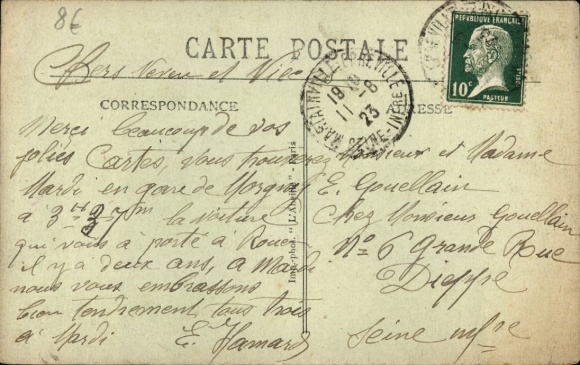 8€
CARTE POSTALE
Chers Neveu et Nièce
CORRESPONDANCE
ADRESSE
Merci beaucoup de vos
jolies Cartes, vous trouverez
Mardi en gare de Morgny
à 3H 27m la voiture
qui vous a porté à Rouen
il y a deux ans, a Mardi
nous vous embrassons
bien tendrement tous trois
à Mardi
E. Hamard
Imp.-phot. "L'Abeille" - Paris
Monsieur et Madame
E. Gouellain
Chez Monsieur Gouellain
No 6 Grande Rue
Dieppe
Seine Infre
REPVBLIQUE FRANÇAISE
10c
PASTEUR
MARTAINVILLE-EPREVILLE
19
11-8
23
SEINE-INFRE